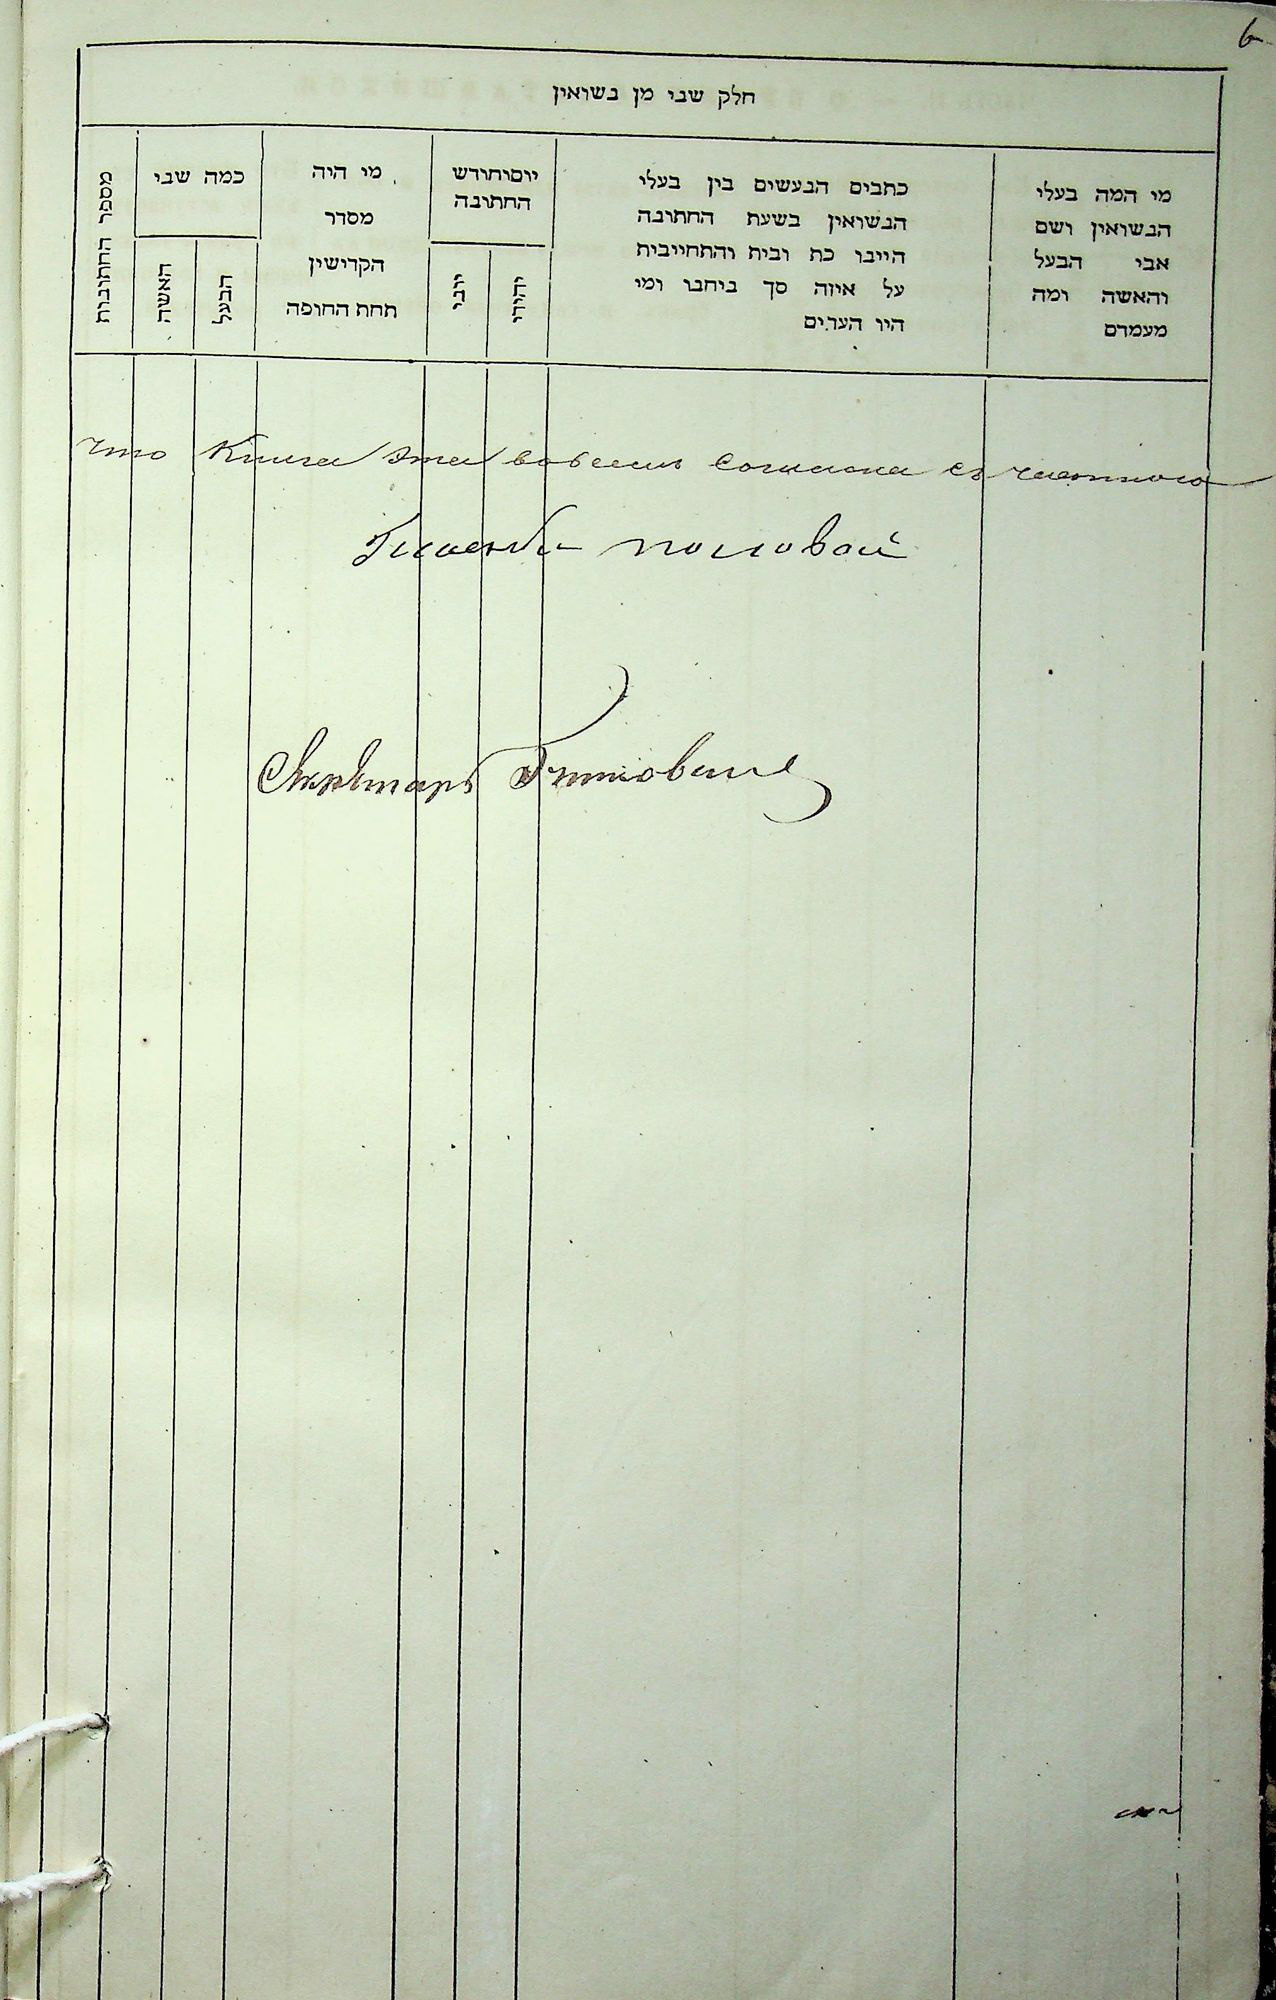 6
חלק שני מן נשואין
מספר החתונות
כמה שני
האשה
הבעל
מי היה
מסדר
הקדישין
תחת החופה
יום וחודש
החתונה
יוני
יהודי
כתבים הנעשים בין בעלי
הנשואין בשעת החתונה
היינו כת ובית והתחייבית
על איזה סך ניתנו ומי
היו העדים
מי המה בעלי
הנשואין ושם
אבי הבעל
והאשה ומה
מעמדם
что Книга эта вовсемъ согласна съ
половой
Секретарь